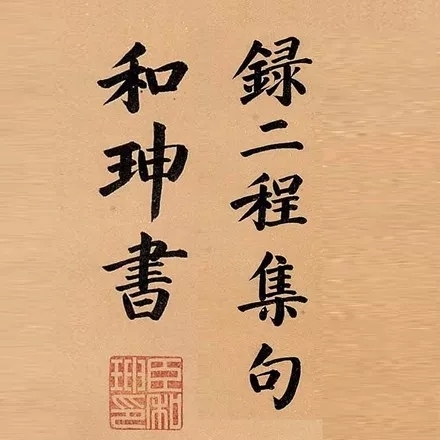 録二程集句
和珅書
臣和
珅印